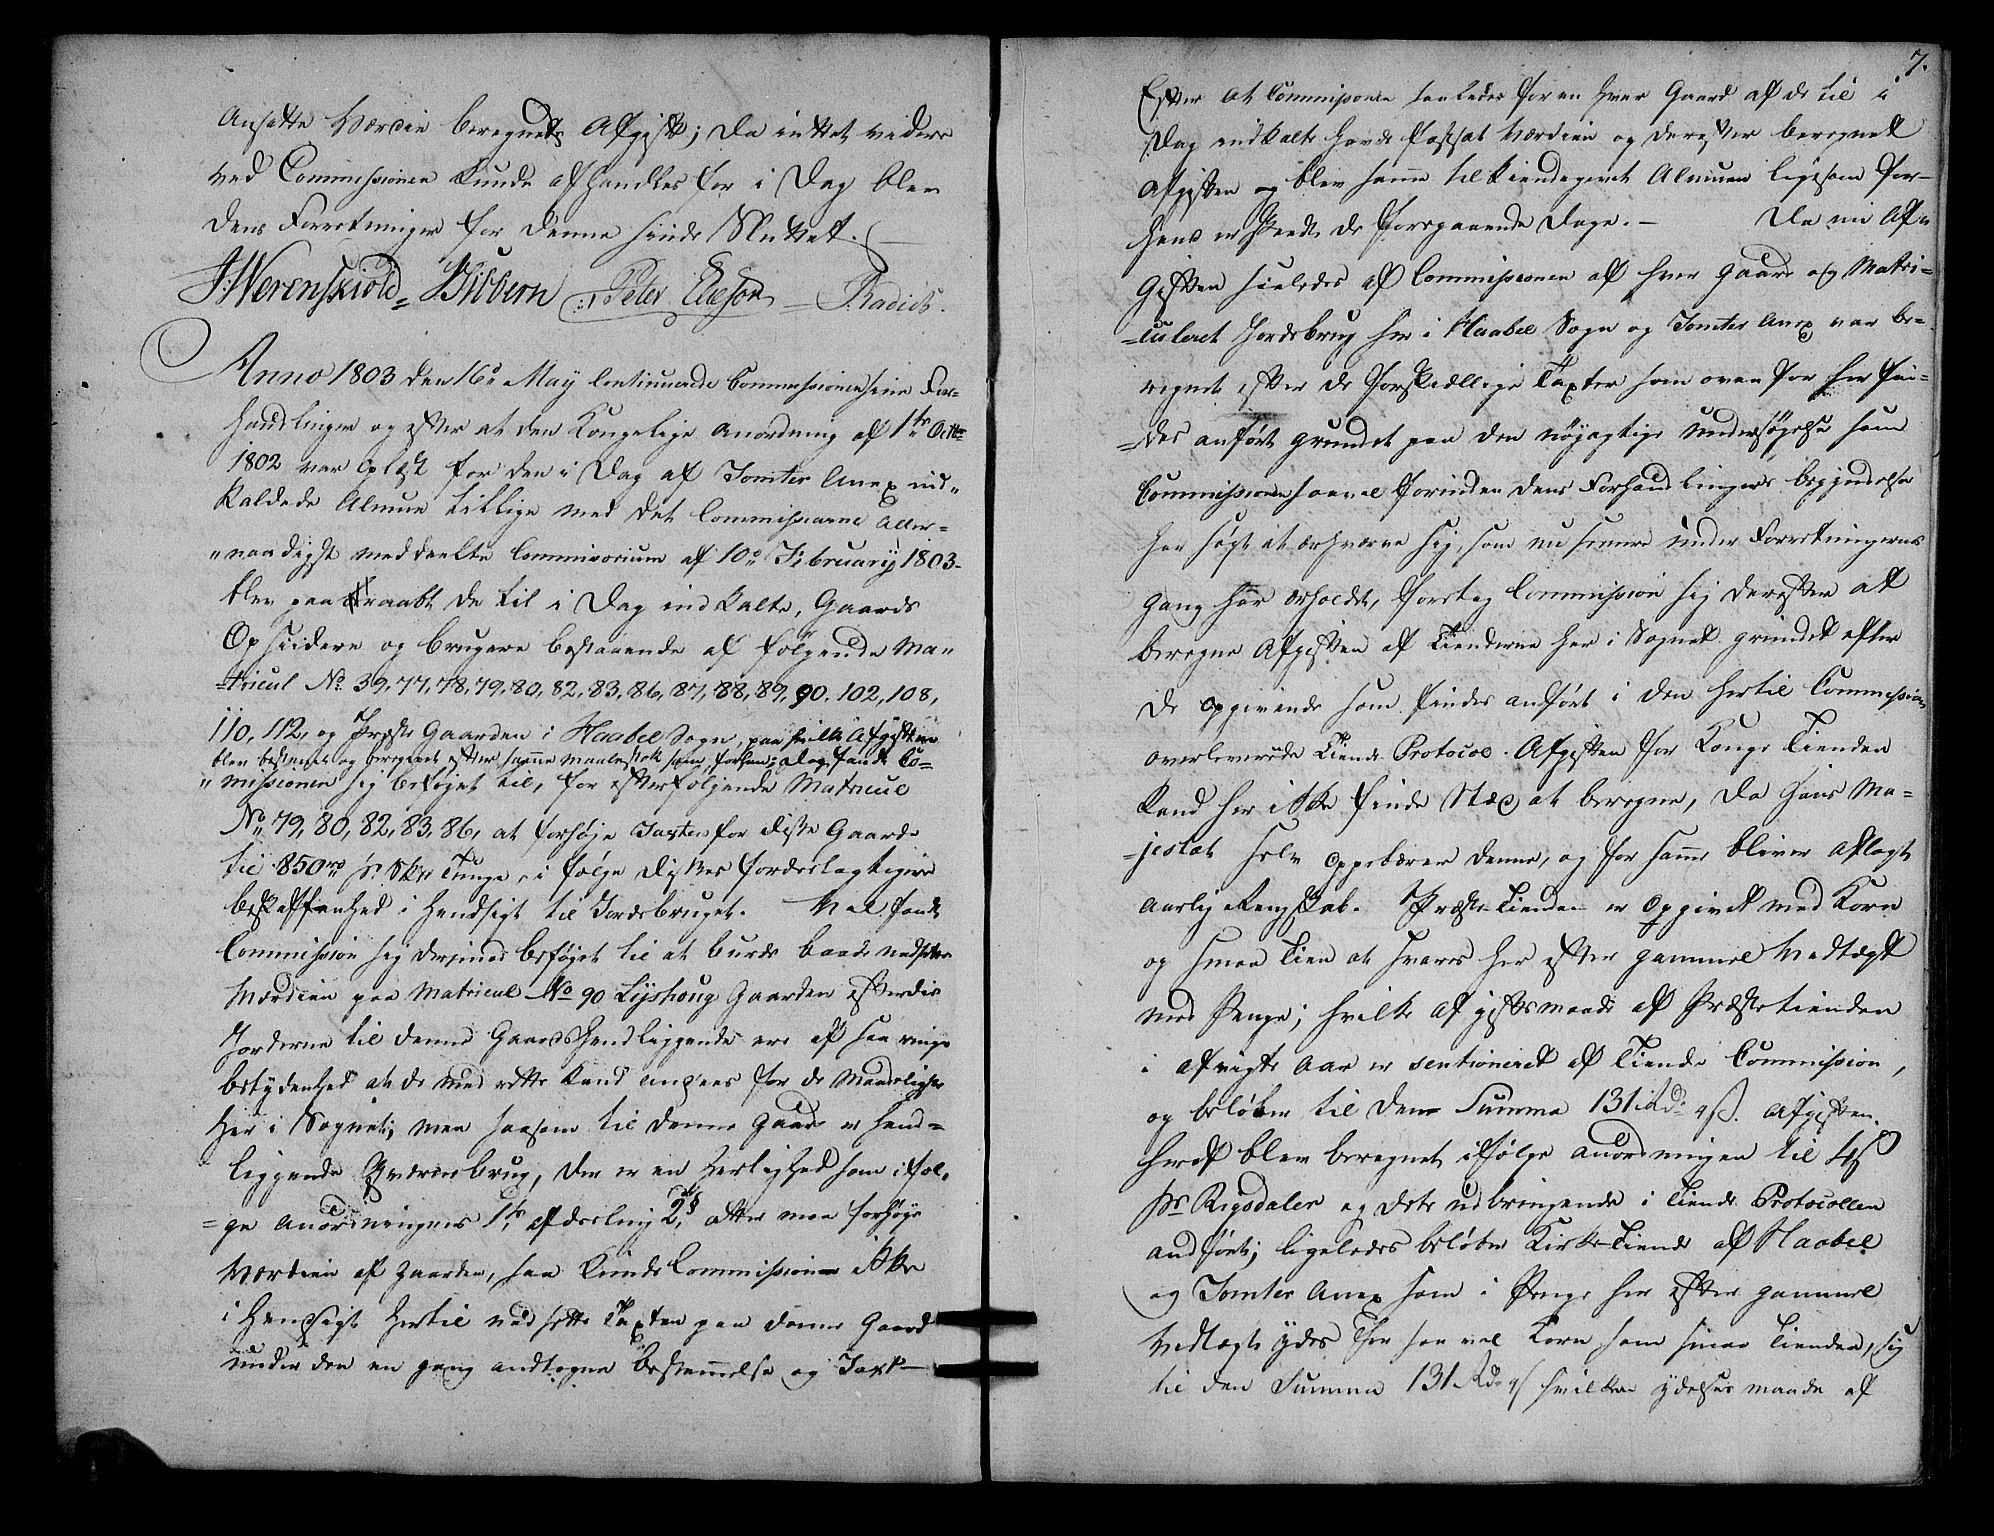 Ansatte Værdie beregnede Afgift; da intet videre
ved Commissionen kunde afhandles for i Dag blev
dens Forretninger for denne sinde Sluttet.
JWerenskiold Sibbern Peter Eliesøn Radich.
Anno 1803 den 16de May Continuerede Commissionen sine For-
handlinger og efter at den Kongelige Anordning af 1te Octbr
1802 var Oplæst for den i Dag af Tomter Anex ind-
kaldede Almue tillige med det Commissionens aller-
naadigst meddeelte Commissorium af 10de February 1803
blev paaraabt de til i Dag indkalte, Gaards
Opsiddere og brugere bestaaende af følgende Ma-
tricul No 39, 77, 78, 79, 80, 82, 83, 86, 87, 88, 89, 90, 102, 108,
110, 112, og Præste Gaarden i Haabel Sogn, paa hvilke Afgiften
blev bestemt og beregnet efter samme maalestok som forhen; Dog fandt Co-
missionen sig beføjet til, for efterfølgende Matricul
No 79, 80, 82, 83, 86, at forhøje Taxten for disse Gaarde
til 850rd pr Skt Tunge, i følge disses fordeelagtigere
beskaffenhed i Hendsigt til Jordebruget. Vel fandt
Commission sig derimod beføjet til at burde baade nedsette
Værdien paa Matricul No 90 Lyshoug Gaarden efterdi
Jorderne til denne Gaards henliggende ere af saa ringe
betydenhed at de med rette kand ansees for de Maadeligste
her i Sognet; men saasom til denne Gaard er hend-
liggende Qværnebrug, der er en Herlighed som iføl-
ge anordningens 1te afdeeling 2den § atter maa forhøye
Værdien af Gaarden, saa kunde Commissionen ikke
i Hensigt hertil nedsette Taxten paa denne Gaard
under den en gang andtagne bestemmelse og Taxt
7.
Efter at Commissionen saaledes for en hver Gaard af de til i
Dag indkalte havde fastsat Værdien og derefter beregnet
Afgiften og blev samme tilkiendegivet Almuen ligesom for-
hen er skeedt de foregaaende Dage. Da nu Af-
giften saaledes af Commissionen af hver Gaard og Matri-
culeret Jordebrug her i Haabel Sogn og Tomter Anex var be-
regnet efter de forskiællige Taxter som oven for her fin-
des anført grundet paa den nøyagtige undersøgelse som
Commissionen saavel forinden dens Forhandlingers begyndelse
har søgt at erhverve sig, som nu senere under Forretningernes
Gang har erholdt, foretog Commission sig derefter at
beregne Afgiften af Tienderne her i Sognet grundet efter
de opgivende som findes anført i den hertil Commissionen
overleverede Tiende Protocol. Afgiften for Konge Tienden
kand her ikke finde Stæd at beregne, da Hans Ma-
jestæt selv oppebærer denne, og for samme bliver aflagt
aarlig Regnskab. Præste Tienden er opgivet med Korn
og smaa Tiend at svares her efter gammel Vedtægt
med Penge; hvilke afgiftsmaade af Præstetienden
i afvigte Aar er sentioneret af Tiende Commission,
og beløber til den Summa 131 Rdr 4 ß. Afgiften
heraf blev beregnet ifølge anordningen til 4ß
pr Rigsdaler og dets udbringende i Tiende Protocollen
andført; ligeledes beløber Kirke-Tiende af Haabel
og Tomter Anex som i Penge her efter gammel
Vedtægt ydes for saa vel Korn som smaa Tienden, sig
til den Summa 131 Rdr 4 ß hvilken ydelses maade af